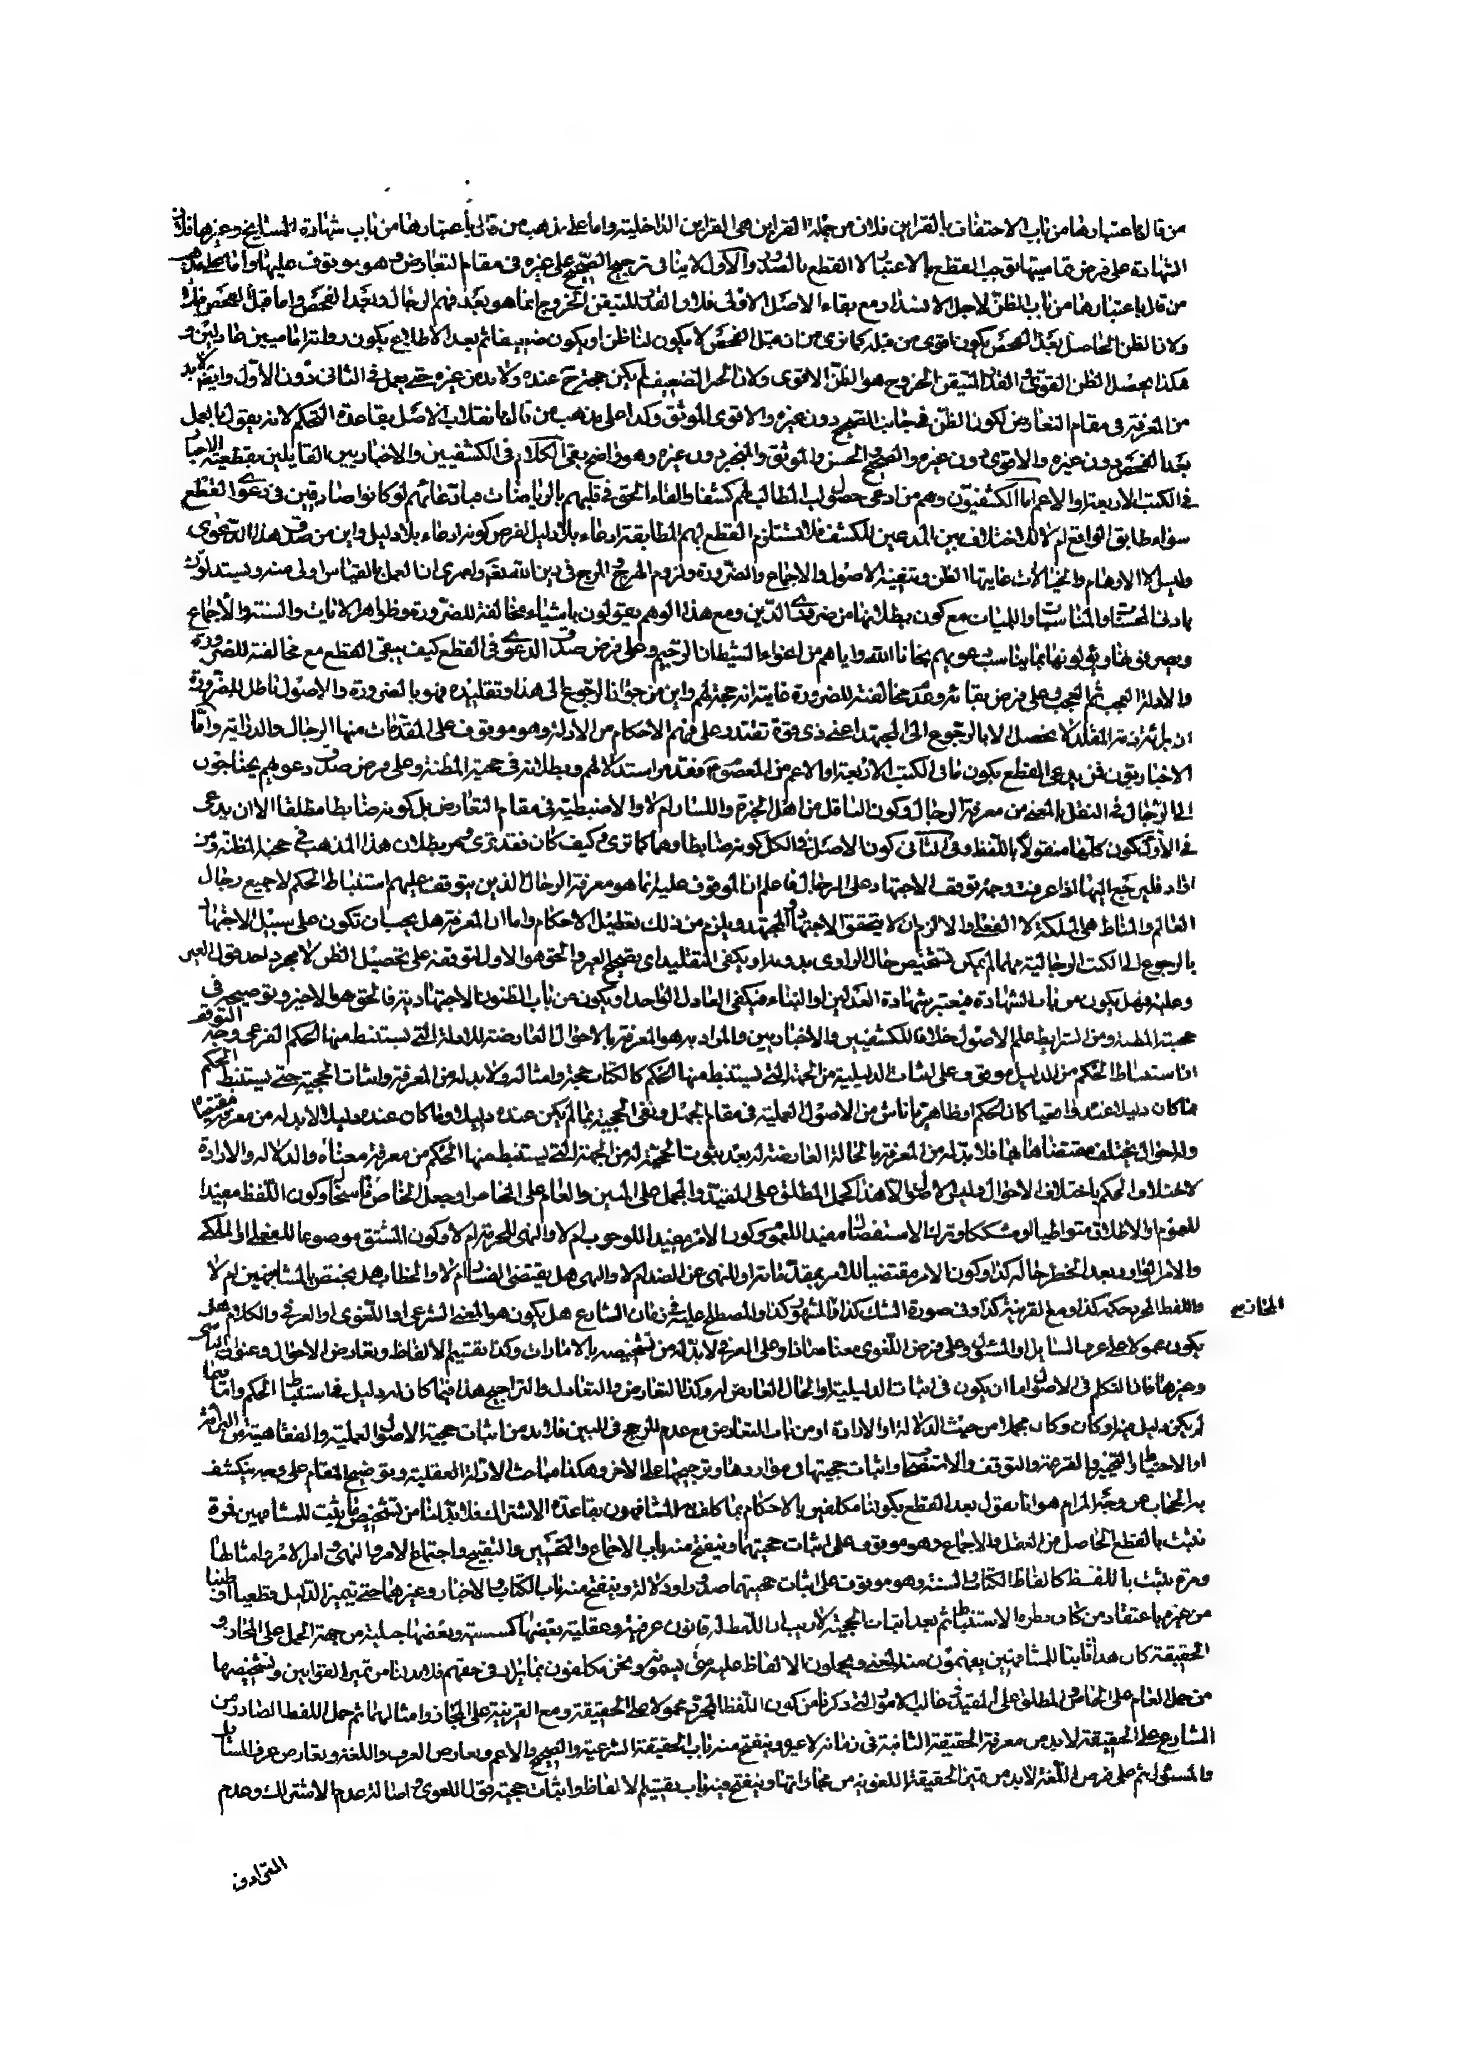 من قال باعتبارها من باب الاحتفاف بالقراين فلان من جملة القراين هي القراين الداخلية واما على مذهب من قال باعتبارها من باب شهادة المشايخ وغيرها فلان
الشهادة على فرض تماميتها توجب القطع بالاعتبار لا القطع بالصدور والاول لا ينافي ترجيح الصحيح على غيره في مقام التعارض وهو موقوف عليها واما على مذهب
من قال باعتبارها من باب الظن لاجل الانسداد مع بقاء الاصل الاولى فلان القدر المتيقن الخروج انما هو بعد فهم الرجال وبعد الفحص واما قبل الفحص فلا
ولان الظن الحاصل بعد الفحص يكون اقوى من قبله كما ترى من ان قبل الفحص لا يكون لنا ظن او يكون ضعيفا ثم بعد الاطلاع يكون
هكذا يحصل الظن القوى والقدر المتيقن الخروج هو الظن الاقوى ولان الخبر الضعيف لم يكن حجة عنده ولابد من غيره حتى يعمل في الثانى دون الاول وايضا لابد
من المعرفة في مقام التعارض لكون الظن في جانب الصحيح دون غيره والاقوى الموثق وكذا على مذهب من قال بانقلاب الاصل بقاعدة التحكم لانه يقول بالعمل
بعد الفحص دون غيره والاقوى دون غيره والصحيح والحسن والموثق والمنجبر دون غيره وهو واضح بقى الكلام في الكشفيين والاخباريين القايلين بقطعية الاخبار
في الكتب الاربعة او الاعم اما الكشفيون وهم من ادعى حصول المطالب لهم كشفا والقاء الحق في قلبهم بالرياضات مبادعائهم لو كانوا صادقين في دعوى القطع
سواء طابق الواقع ام لا لاختلاف بين المدعين للكشف فلا تستلزم القطع لهم المطابقة ادعاء بلا دليل لفرض كونه ادعاء بلا دليل واين من صدق هذا الدعوى
وليس الا الاوهام والخيالات غايتها الظن وتنفيه الاصول والاجماع والضرورة ولزوم الهرج والمرج في دين الله تعالى ولعمرى ان العمل بالقياس اولى منه ويستدلون
بادنى المحسنات والمناسبات واللميات مع كون بطلانها من ضرورى الدين ومع هذا الوهم يقولون باشياء مخالفة للضرورة وظواهر الايات والسنة والاجماع
ويصرفونها ويؤلونها بما يناسب دعويهم نجانا الله واياهم من اغواء الشيطان الرجيم وعلى فرض صدق الدعوى في القطع كيف يبقى القطع مع مخالفته للضرورة
والادلة العجب ثم العجب وعلى فرض بقائه وعدم مخالفته للضرورة غايته انه حجة لهم واين من جواز الرجوع الى هذا وتقليده فهو بالضرورة والاصول باطل للضرورة
ان برائة ذمة المقلد لا يحصل الا بالرجوع الى المجتهد اعنى ذى قوة يقتدر على فهم الاحكام من الادلة وهو موقوف على المقدمات منها الرجال والدراية واما
الاخباريون فمن يدعى القطع بكون ما في الكتب الاربعة او الاعم من المعصوم فقد مر استدلالهم وبطلانه في حجية المظنة وعلى فرض صدق دعويهم يحتاجون
الى الرجال في النقل بالمعنى من معرفة الرجال وكون الناقل من اهل الخبرة واللسان ام لا والاضبطية في مقام التعارض بل كونه ضابطا مطلقا الا ان يدعى
في الاول كون كلها منقولا باللفظ وفى الثانى كون الاصل في الكل كونه ضابطا وهما كما ترى وكيف كان فقد ترى ومر بطلان هذا المذهب في حجية المظنة ومن
اراد فليرجع اليها اذا عرفت وجه توقف الاجتهاد على الرجال فاعلم ان الموقوف عليه انما هو معرفة الرجال الذين يتوقف عليهم استنباط الحكم لا جميع رجال
العالم والمناط هى الملكة لا الفعل والا لزم ان لا يتحقق الاجتهاد والمجتهد ويلزم من ذلك تعطيل الاحكام واما ان المعرفة هل يجب ان تكون على سبيل الاجتهاد
بالرجوع الى الكتب الرجالية مهما لم يمكن تشخيص حال الراوى بدونه او يكفى التقليد اى بتصحيح الغير والحق هو الاول لتوقفه على تحصيل الظن لا مجرد احد قول الغير
وعليه فهل يكون من باب الشهادة فيعتبر شهادة العدلين او النباء فيكفى العادل الواحد او يكون من باب الظنون الاجتهادية فالحق هو الاخير وتوضيحه في
حجية المظنة ومن الشرايط علم الاصول خلافا للكشفيين والاخباريين والمراد به هو المعرفة بالاحوال العارضة للادلة التى يستنبط منها الحكم الفرعى وجه التوقف
ان استنباط الحكم من الدليل موقوف على اثبات الدليلية من الجهة التى يستنبط منها الحكم كالكتاب حجة وامثاله ولابد له من المعرفة واثبات الحجية حتى يستنبط الحكم
مما كان دليلا عنده واقعيا كان الحكم او ظاهريا ناش من الاصول العملية في مقام الجهل ونفى الحجية بما لم يكن عنده دليل وما كان عنده دليل لابد له من معرفة مقتضاه
والاحوال يختلف مقتضاها بها فلابد له من المعرفة بالحالة العارضة له بعد ثبوت الحجية له من الجهة التى يستنبط منها الحكم من معرفة معناه والدلالة والارادة
لاختلاف الحكم باختلاف الاحوال وليس الاصول الا هذا كحمل المطلق على المقيد والمجمل على المبين والعام على الخاص او جعل الخاص ناسخا وكون اللفظ مفيدا
للعموم او الاطلاق متواطيا او مشككا وترك الاستفصال مفيدا للعموم وكون الامر مفيدا للوجوب ام لا والنهى للحرمة ام لا وكون المشتق موضوعا للفعل او الملكة
والامر الوارد بعد الحظر حاله كذا وكون الامر مقتضيا للامر بمقدماته او للنهى عن الضد ام لا والنهى هل يقتضى الفساد ام لا والخطاب هل يختص بالمشافهين ام لا
واللفظ المجرد حكمه كذا ومع القرينة كذا وفى صورة الشك كذا والمشهور كذا والمصطلح عليه في زمان الشارع هل يكون هو المعنى الشرعى او اللغوى او العرفى والكلام هل المجاز
يكون محمولا على عرف السايل او المسئول وعلى فرض اللغوى معناه ماذا وعلى العرف لابد له من تشخيصه بالامارات وكذا تقسيم الالفاظ وتعارض الاحوال
وغيرها فان التكلم في الاصول اما ان يكون في اثبات الدليلية او الحال العارض له وكذا التعارض والتعادل والتراجيح هذا فيما كان له دليل في استنباط الحكم واما فيما
لم يكن دليل فيه او كان وكان مجملا من حيث الدلالة او الارادة او من باب التعارض مع عدم المرجح في البين فلابد من اثبات حجية الاصول العملية والفقاهية من البرائة
او الاحتياط والتخيير والقرعة والتوقف والاستصحاب واثبات حجيتها في مواردها وترجيحها على الاخر وهكذا مباحث الادلة العقلية وتوضيح المقام على وجه ينكشف
به الحجاب عن وجه المرام هو انا نقول بعد القطع بكوننا مكلفين بالاحكام بما كلف به المشافهون بقاعدة الاشتراك فلابد لنا من تشخيص ما يثبت للمشافهين فمرة
تثبت بالقطع الحاصل من العقل والاجماع وهو موقوف على اثبات حجيتهما وينفتح منه باب الاجماع والتحسين والتقبيح واجتماع الامر والنهى وامثالها
ومرة يثبت باللفظ كالفاظ الكتاب والسنة وهو موقوف على اثبات حجيتهما صدورا ودلالة وينفتح منه باب الكتاب والاخبار وغيرهما حتى يتميز الدليل قطعيا او ظنيا
من غيره باعتقاد من كان نظره الاستنباط ثم بعد اثبات الحجية لا ريب ان اللفظ له قانون عرفية وعقلية بعضها كسبية وبعضها جبلية من جهة الحمل على المجاز
الحقيقة كان هذا ثابتا للمشافهين يفهمون منه المعنى ويحملون الالفاظ عليه ونحن مكلفون بما يراد في حقهم فلابد لنا من تميز القوانين وتشخيصها
من حمل العام على الخاص والمطلق على المقيد في غالب الامور التى ذكرنا من كون اللفظ المجرد محمولا على الحقيقة ومع القرينة على المجاز وامثالها ثم حمل اللفظ الصادر من
الشارع على الحقيقة لابد من معرفة الحقيقة الثابتة في زمانه لا غير وينفتح منه باب الحقيقة الشرعية والصحيح والاعم وتعارض العرف واللغة وتعارض عرف السايل
والمسئول ثم على فرض اللغة لابد من تميز الحقيقة اللغوية من مجازاتها وينفتح منه باب تقسيم الالفاظ واثبات حجية قول اللغوى واصالة عدم الاشتراك وعدم
الترادف